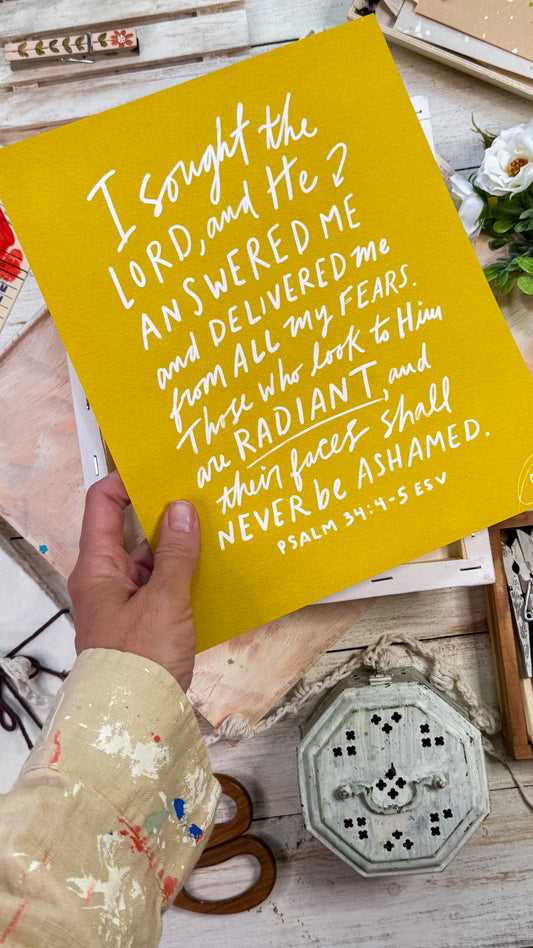 I sought the
LORD, and He
ANSWERED ME
and DELIVERED me
from ALL my FEARS.
Those who look to Him
are RADIANT, and
their faces shall
NEVER be ASHAMED.
PSALM 34:4-5 ESV